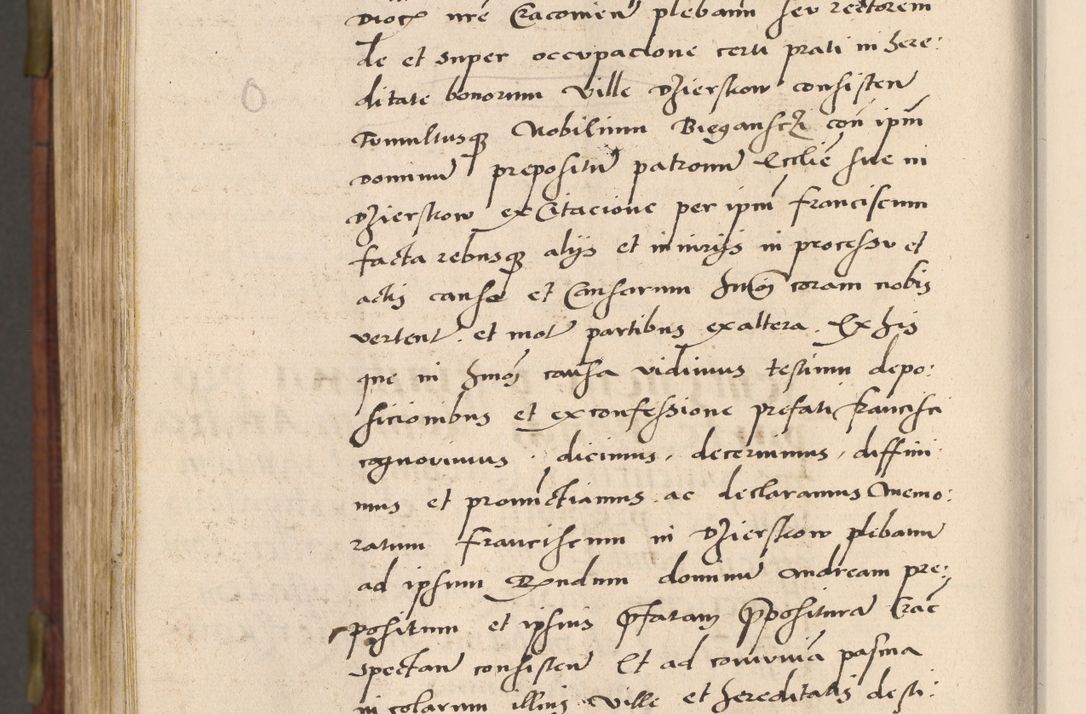 Dioc nre Cracovien plebanu seu rectorem
de et super occupacione certi prati in here:
ditate bonorum ville Dzierskow consisten
Tumultusq Nobilium Biegansczi con ipm
Dominu prepositu patronu Ecclie sue in
Dzierskow ex Citacione per ipm Franciscum
facta rebusq alijs et iniurijs in processu et
actis causae et Causarum hmoi coram nobis
vertent et mot partibus ex altera. Ex his
que in hmoi causa vidimus testium depo:
sicionibus et ex confessione prefati Francisci
cognovimus dicimus, decernimus, diffini
mus et pronunctiamus ac declaramus Memo:
ratum Franciscum in Dzierskow plebanu
ad ipsum Rndum dominu Andream pre:
positum et ipsius pfatam ppositura Crac
spectan consisten Et ad convivia pasma
incolarum illius ville et hereditatis desti: